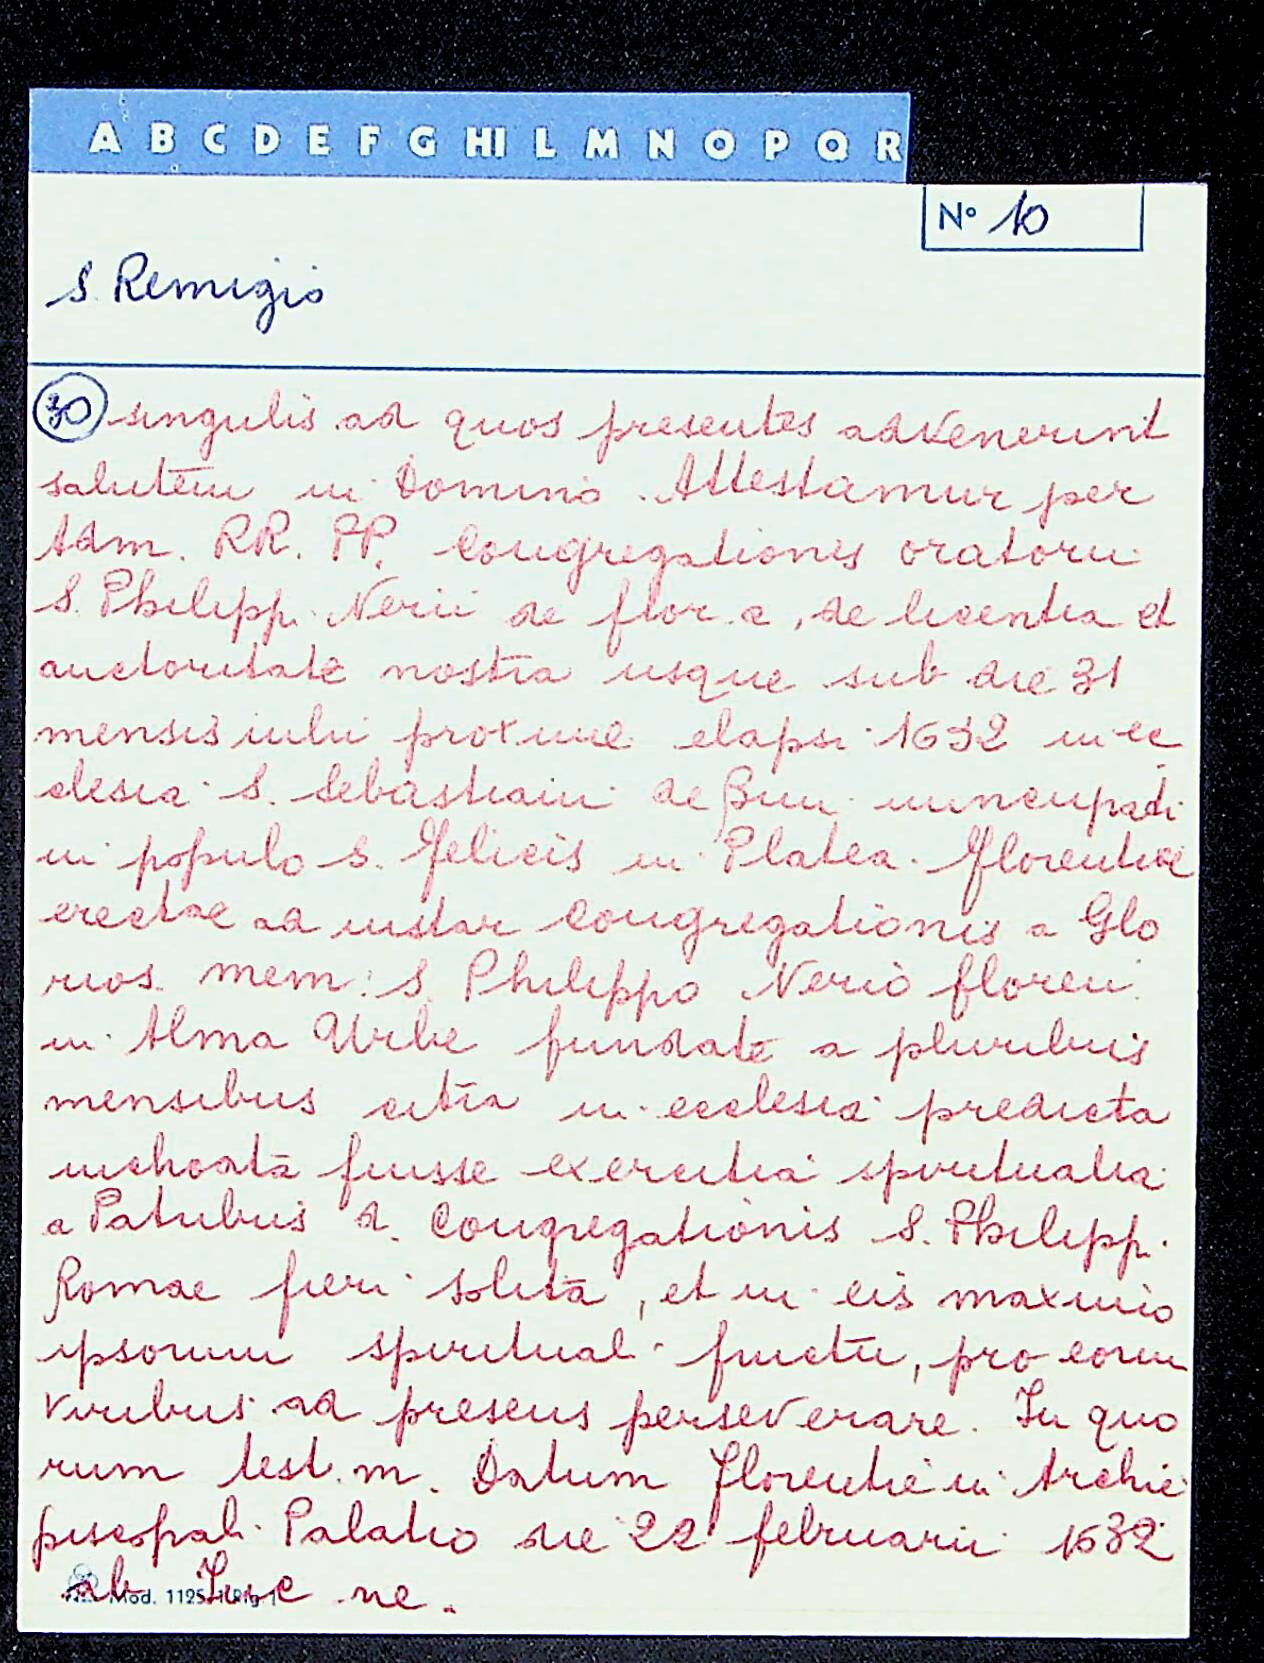 A B C D E F G HI L M N O P Q R
N° 10
S. Remigio
30 singulis ad quos presentes advenerint
salutem in Domino. Attestamur per
Adm. RR. PP. Congregationis oratorii
S. Philipp. Nerii de flor.e, de licentia et
auctoritate nostra usque sub die 31
mensis iulii proxime elapsi 1632 in ec
clesia S. Sebastiani de Bini nuncupati
in populo S. Felicis in Platea. Florentiae
erectae ad instar Congregationis a Glo
rios. mem: S. Philippo Nerio floren.
in Alma Urbe fundate a pluribus
mensibus citra in ecclesia predicta
inchoata fuisse exercitia spiritualia
a Patribus d. Congregationis S. Philipp.
Romae fieri solita, et in eis maximo
ipsorum spiritual. fructu, pro eorum
viribus ad presens perseverare. In quo
rum test. m. Datum Florentie in Archie
piscopali Palatio die 22 februarii 1632
ab Inc ne.
Mod. 1125